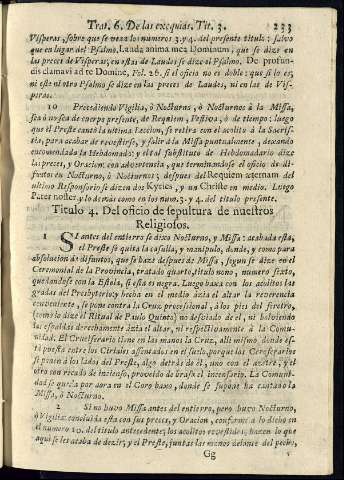 Trat. 6. De las exequias. Tit. 3. 233
Visperas, sobre que se vean los numeros 3. y 4. del presente titulo: salvo
que en lugar del Psalmo, Lauda anima mea Dominum, que se dize en
las preces de Visperas, en estas de Laudes se dize el Psalmo. De profun-
dis clamavi ad te Domine, Fol. 26. si el oficio no es doble: que si lo es,
ni este ni otro Psalmo se dize en las preces de Laudes, ni en las de Vis-
peras.
10 Precediendo Vigilia, ò Nocturno, ò Nocturnos à la Missa,
sea ò no sea de cuerpo presente, de Requiem, Festiva, ò de tiempo: luego
que el Preste cantò la ultima Leccion, se retira con el acolito à la Sacris-
tia, para acabar de revestirse, y salir à la Missa puntualmente, dexando
encomendada la Hebdomada: y el tal substituto de Hebdomadario dize
las preces, y Oracion: con advertencia, que terminandose el oficio de di-
funtos en Nocturno, ò Nocturnos; despues del Requiem æternam del
ultimo Responsorio se dizen dos Kyries, y un Christe en medio. Luego
Pater noster, y lo demàs como en los num. 3. y 4. del titulo presente.
Titulo 4. Del oficio de sepultura de nuestros
Religiosos.
1 SI antes del entierro se dixo Nocturno, y Missa: acabada esta,
el Preste se quita la casulla, y manipulo, donde, y como para
absolucion de difuntos, que se haze despues de Missa, segun se dize en el
Ceremonial de la Provincia, tratado quarto, titulo nono, numero sexto,
quedandose con la Estola, si esta es negra. Luego baxa con los acolitos las
gradas del Presbyterio: y hecha en el medio àzia el altar la reverencia
conveniente, se pone contra la Cruz processional, à los pies del feretro,
(como lo dize el Ritual de Paulo Quinto) no desviado de el, ni bolviendo
las espaldas derechamente àzia el altar, ni respectivamente à la Comu-
nidad. El Cruciferario tiene en las manos la Cruz, alli mismo, donde es-
tà puesta entre los Ciriales assentados en el suelo, porque los Ceroferarios
se ponen à los lados del Preste, algo detràs de èl, uno con el azetre, y el
otro con recado de incienso, proveido de brasa el incensario. La Comuni-
dad se queda por aora en el Coro baxo, donde se supone ha cantado la
Missa, ò Nocturno.
2 Si no huvo Missa antes del entierro, pero huvo Nocturno,
ò Vigilia: concluida esta con sus preces, y Oracion, conforme à lo dicho en
el numero 10. del titulo antecedente; los acolitos revestidos, hazen lo que
aqui se les acaba de dezir; y el Preste, juntas las manos delante del pecho,
Gg